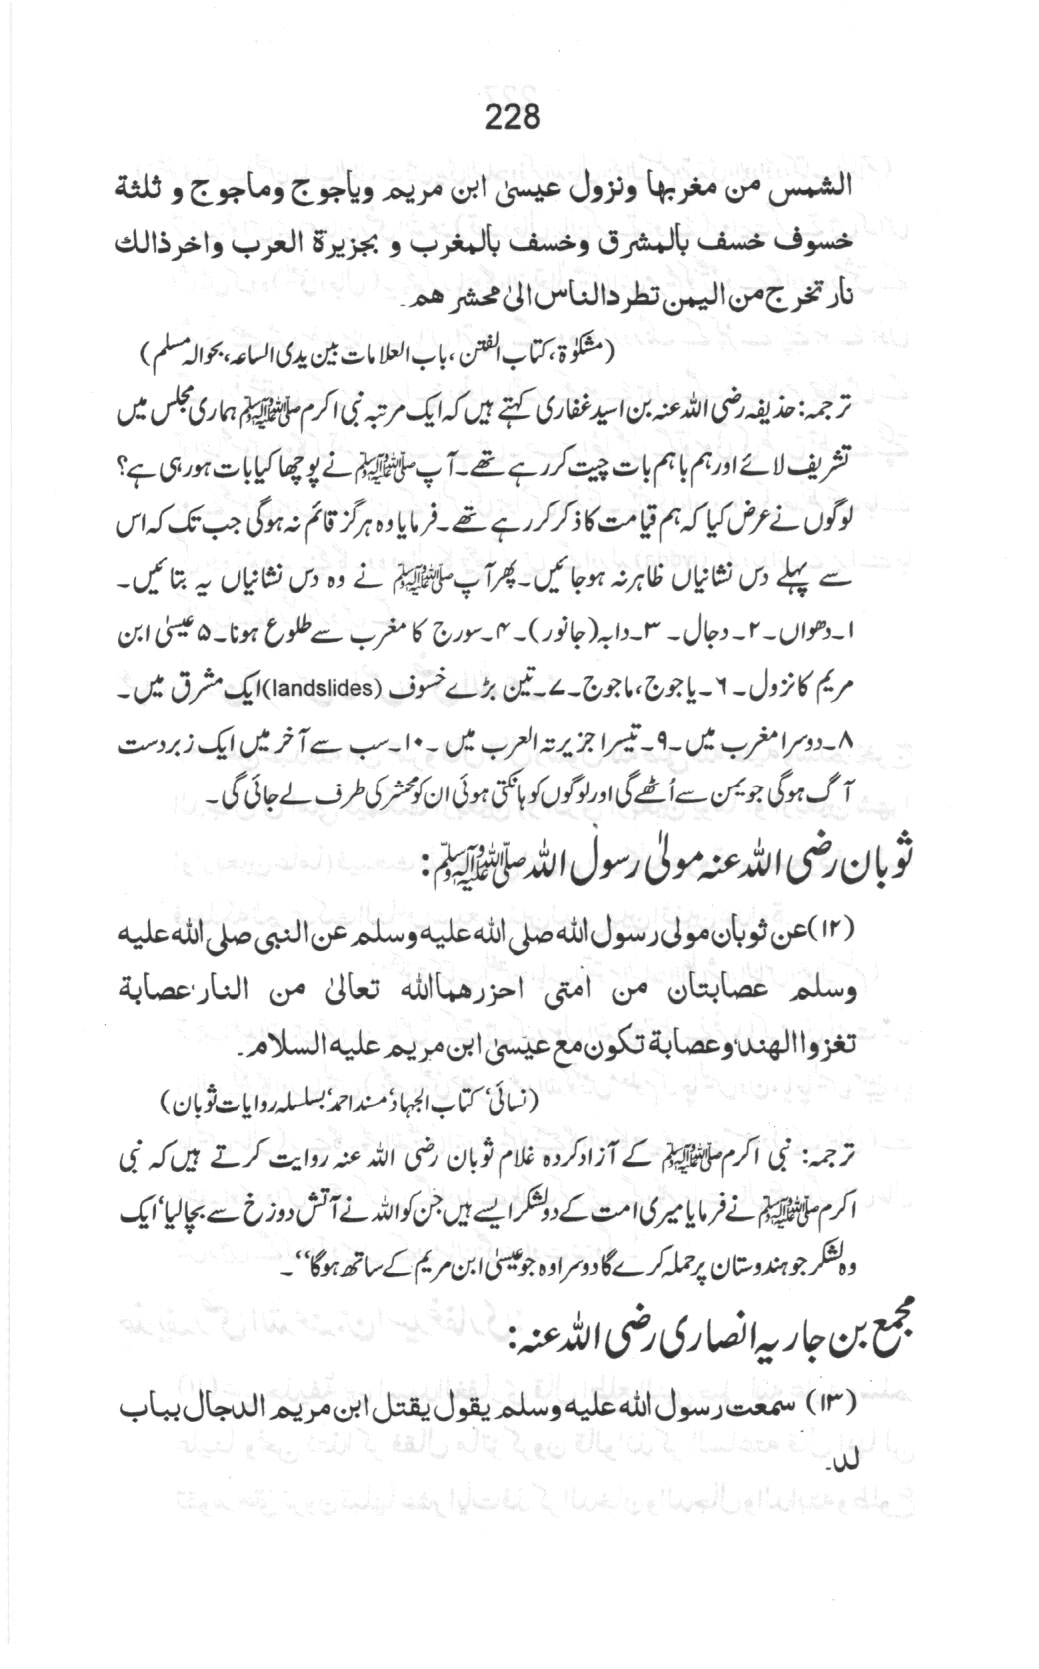 228
الشمس من مغربها ونزول عیسیٰ ابن مریم ویاجوج وماجوج و ثلثة
خسوف خسف بالمشرق وخسف بالمغرب و بجزیرة العرب واخر ذالك
نار تخرج من الیمن تطرد الناس الیٰ محشر هم۔
(مشکوٰة، کتاب الفتن، باب العلامات بین یدی الساعہ، بحوالہ مسلم)
ترجمہ: حذیفہ رضی اللہ عنہ بن اسید غفاری کہتے ہیں کہ ایک مرتبہ نبی اکرم ﷺ ہماری مجلس میں
تشریف لائے اور ہم باہم بات چیت کر رہے تھے۔ آپ ﷺ نے پوچھا کیا بات ہورہی ہے؟
لوگوں نے عرض کیا کہ ہم قیامت کا ذکر کر رہے تھے۔ فرمایا وہ ہرگز قائم نہ ہوگی جب تک کہ اس
سے پہلے دس نشانیاں ظاہر نہ ہوجائیں۔ پھر آپ ﷺ نے وہ دس نشانیاں یہ بتائیں۔
۱۔ دھواں۔ ۲۔ دجال۔ ۳۔ دابہ (جانور)۔ ۴۔ سورج کا مغرب سے طلوع ہونا۔ ۵ عیسیٰ ابن
مریم کا نزول۔ ۶۔ یاجوج، ماجوج۔ ۷۔ تین بڑے خسوف (landslides) ایک مشرق میں۔
۸۔ دوسرا مغرب میں۔ ۹۔ تیسرا جزیرتہ العرب میں۔ ۱۰۔ سب سے آخر میں ایک زبردست
آگ ہوگی جو یمن سے اُٹھے گی اور لوگوں کو ہانکتی ہوئی ان کو محشر کی طرف لے جائی گی۔
ثوبان رضی اللہ عنہ مولیٰ رسول اللہ ﷺ:
(۱۲) عن ثوبان مولی رسول الله صلی الله علیه وسلم عن النبی صلی الله علیه
وسلم عصابتان من امتی احزرهماالله تعالیٰ من النار، عصابة
تغزوا الهند، وعصابة تکون مع عیسیٰ ابن مریم علیه السلام۔
(نسائی، کتاب الجہاد، مسند احمد، بسلسلہ روایات ثوبان)
ترجمہ: نبی اکرم ﷺ کے آزاد کردہ غلام ثوبان رضی اللہ عنہ روایت کرتے ہیں کہ نبی
اکرم ﷺ نے فرمایا میری امت کے دو لشکر ایسے ہیں جن کو اللہ نے آتش دوزخ سے بچالیا، ایک
وہ لشکر جو ہندوستان پر حملہ کرے گا دوسرا وہ جو عیسیٰ ابن مریم کے ساتھ ہوگا‘‘۔
مجمع بن جاریہ انصاری رضی اللہ عنہ:
(۱۳) سمعت رسول الله علیه وسلم یقول یقتل ابن مریم الدجال بباب
لد۔